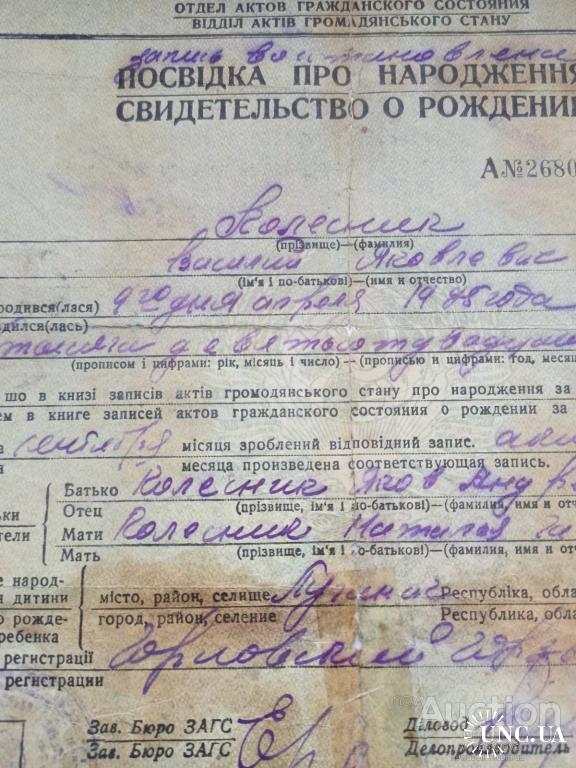 ОТДЕЛ АКТОВ ГРАЖДАНСКОГО СОСТОЯНИЯ
ВІДДІЛ АКТІВ ГРОМАДЯНСЬКОГО СТАНУ
запись
ПОСВІДКА ПРО НАРОДЖЕННЯ
СВИДЕТЕЛЬСТВО О РОЖДЕНИИ
А№2680
Колесник
(прізвище)—(фамилия)
Василий Яковлевич
(ім'я і по-батькові)—(имя и отчество)
родився(лася) 9 го дня апреля 19 года
дился(лась)
тысяча девятьсот
(прописом і цифрами: рік, місяць і число)—(прописью и цифрами: год, месяц
що в книзі записів актів громодянського стану про народження за
ем в книге записей актов гражданского состояния о рождении за
сентября місяця зроблений відповідний запис.
месяца произведена соответствующая запись.
Батько Колесник Яков
Отец (прізвище, ім'я і по-батькові)—(фамилия, имя и отч
Мати Колесник Наталья
Мать (прізвище, ім'я і по-батькові)—(фамилия, имя и отче
ьки
тели
е народ-
я дитини
о рожде-
ребенка
місто, район, селище Республіка, обла
город, район, селение Республика, обла
регистрації Горловский
регистрации
Зав. Бюро ЗАГС
Зав. Бюро ЗАГС
Діловод
Делопроизводитель
Auction
UNC.UA